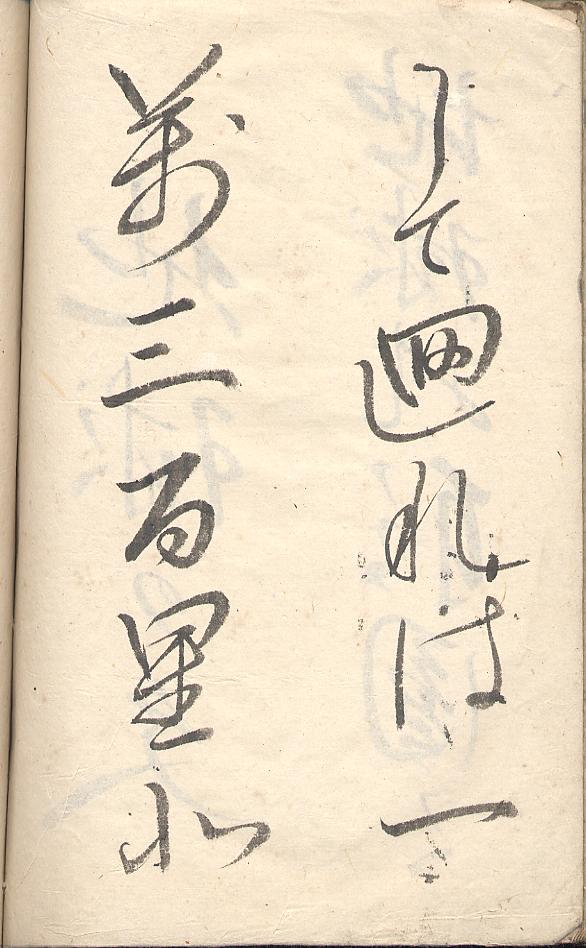 して廻れは一
萬三百里北